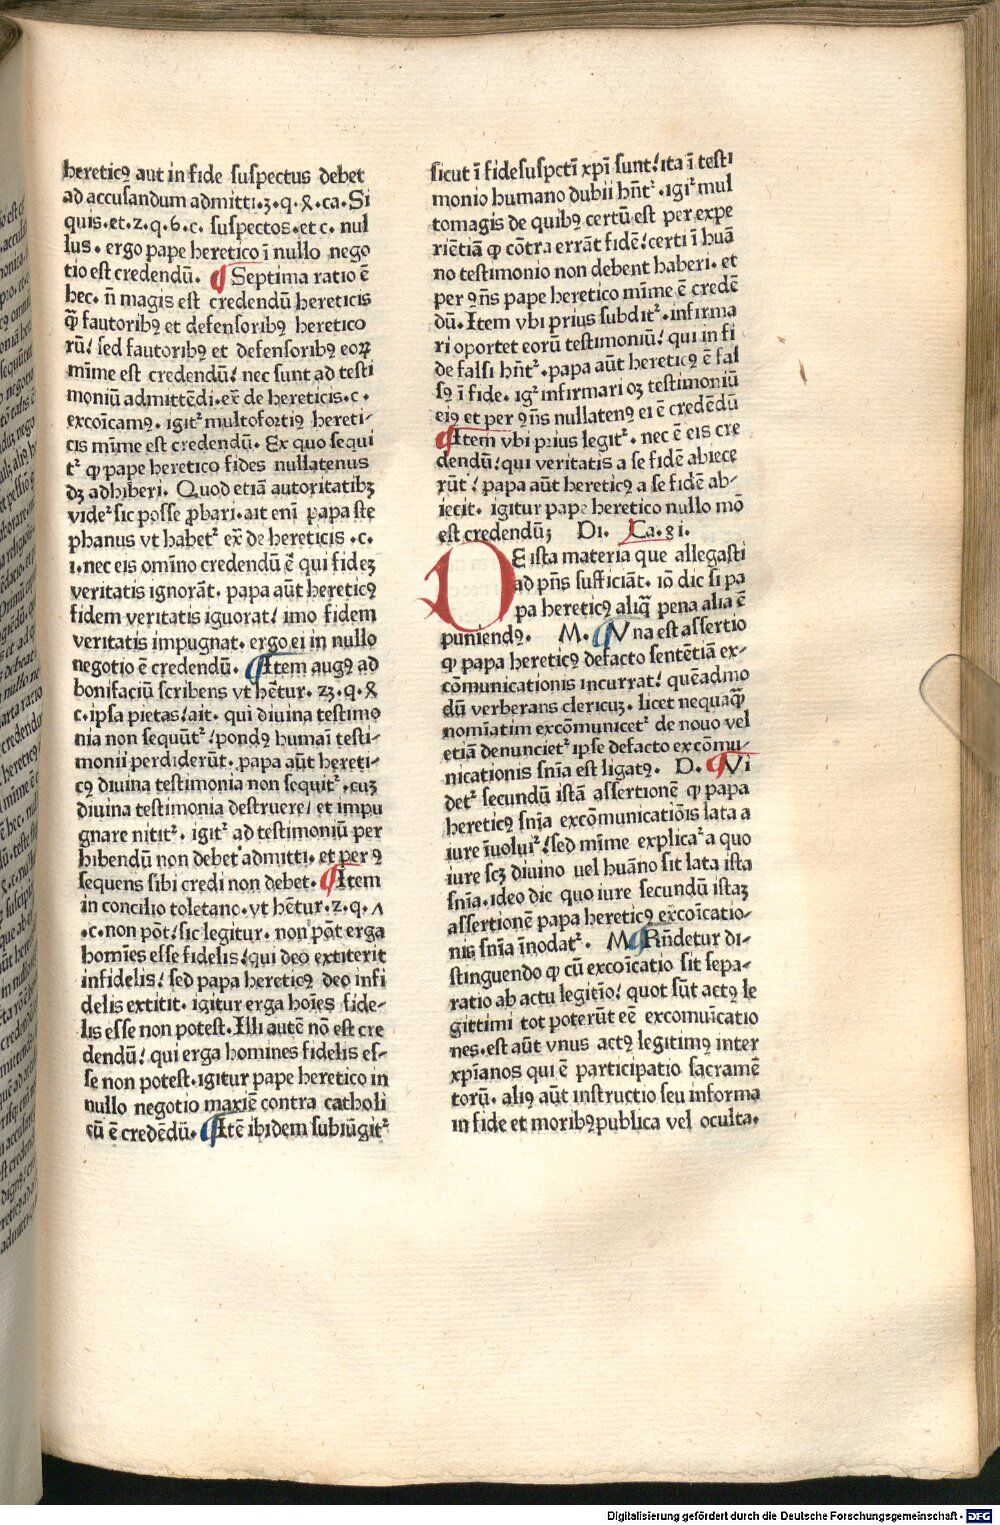 hereticꝰ aut in fide suspectus debet
ad accusandum admitti.3.q.ꝝ.ca.Si
quis.et.2.q.6.c. suspectos.et c. nul
lus. ergo pape heretico ī nullo nego
tio est credendū. ¶ Septima ratio ē
hec. ñ magis est credendū hereticis
q̄ fautoribꝰ et defensoribꝰ heretico
rū! sed fautoribꝰ et defensoribꝰ eoꝝ
mīme est credendū! nec sunt ad testi
moniū admittēdi.ex̄ de hereticis.c.
excoīcamꝰ. igit᷑ multofortiꝰ hereti-
cis mīme est credendū. Ex quo sequi
t᷑ ꝙ pape heretico fides nullatenus
dꝫ adhiberi. Quod etiā autoritatibꝫ
vide᷑ sic posse ꝓbari.ait enī papa ste
phanus vt habet᷑ ex̄ de hereticis .c.
1.nec eis omīno credendū ē qui fideꝫ
veritatis ignorāt. papa aūt hereticꝰ
fidem veritatis iguorat! imo fidem
veritatis impugnat. ergo ei in nullo
negotio ē credendū. ¶Item augꝰ ad
bonifaciū scribens vt hētur. 23.q.ꝝ
c.ipsa pietas!ait. qui diuina testimo
nia non sequūt᷑!pondꝰ humaī testi-
monii perdiderūt. papa aūt hereti-
cꝰ diuina testimonia non sequit᷑.cuꝫ
diuina testimonia destruere! et impu
gnare nitit᷑. igit᷑ ad testimoniū per
hibendū non debet admitti. et per ꝯ
sequens sibi credi non debet. ¶Item
in concilio toletano.vt hētur.2.q.ʌ
.c.non pōt!sic legitur. non pōt erga
homīes esse fidelis!qui deo extiterit
infidelis! sed papa hereticꝰ deo infi
delis extitit. igitur erga hoīes fide-
lis esse non potest.Illi autē nō est cre
dendū! qui erga homines fidelis es-
se non potest.igitur pape heretico in
nullo negotio maxīe contra catholi
cū ē credēdū. ¶Itē ibidem subiūgit᷑
sicut ī fide suspcti xp̄i sunt!ita ī testi
monio humano dubii hn̄t᷑. igi᷑ mul
tomagis de quibꝰ certū est per expe
riētiā ꝙ cōtra errāt fidē!certi ī huā
no testimonio non debent haberi. et
per ꝯn̄s pape heretico mīme ē credē
dū. Item vbi prius subdit᷑. infirma
ri oportet eorū testimoniū! qui in fi
de falsi hn̄t᷑. papa aūt hereticꝰ ē fal
sꝰ ī fide. ig᷑ infirmari oꝫ testimoniū
eiꝰ et per ꝯn̄s nullatenꝰ ei ē credēdū
¶Item vbi prius legit᷑. nec ē eis cre
dendū!qui veritatis a se fidē abiece
rūt! papa aūt hereticꝰ a se fidē ab-
iecit. igitur pape heretico nullo mō
est credendū; Di. Ca.ꝝi.
DE ista materia que allegasti
ad pn̄s sufficiāt. iō dic si pa
pa hereticꝰ aliq̄ pena alia ē
puniendꝰ. M. ¶Vna est assertio
ꝙ papa hereticꝰ defacto sentētiā ex-
cōmunicationis incurrat! quēadmo
dū verberans clericuꝫ. licet nequaq̄
nomīatim excōmunicet᷑ de nouo vel
etiā denunciet᷑ ipse defacto excōmu-
nicationis sn̄ia est ligatꝰ. D. ¶Vi
det᷑ secundū istā assertionē ꝙ papa
hereticꝰ sn̄ia excōmunicatiōis lata a
iure īuolui᷑!sed mīme explica᷑ a quo
iure scꝫ diuino uel huāno sit lata ista
sn̄ia.ideo dic quo iure secundū istaꝫ
assertionē papa hereticꝰ excoīcatio-
nis sn̄ia īnodat᷑. M ¶Rn̄detur di-
stinguendo ꝙ cū excoīcatio sit sepa-
ratio ab actu legitīo! quot sūt actꝰ le
gittimi tot poterūt eē excomuīcatio
nes.est aūt vnus actꝰ legitimꝰ inter
xp̄ianos qui ē participatio sacramē
torū. aliꝰ aūt instructio seu informa
in fide et moribꝰ publica vel oculta.
Digitalisierung gefördert durch die Deutsche Forschungsgemeinschaft - DFG